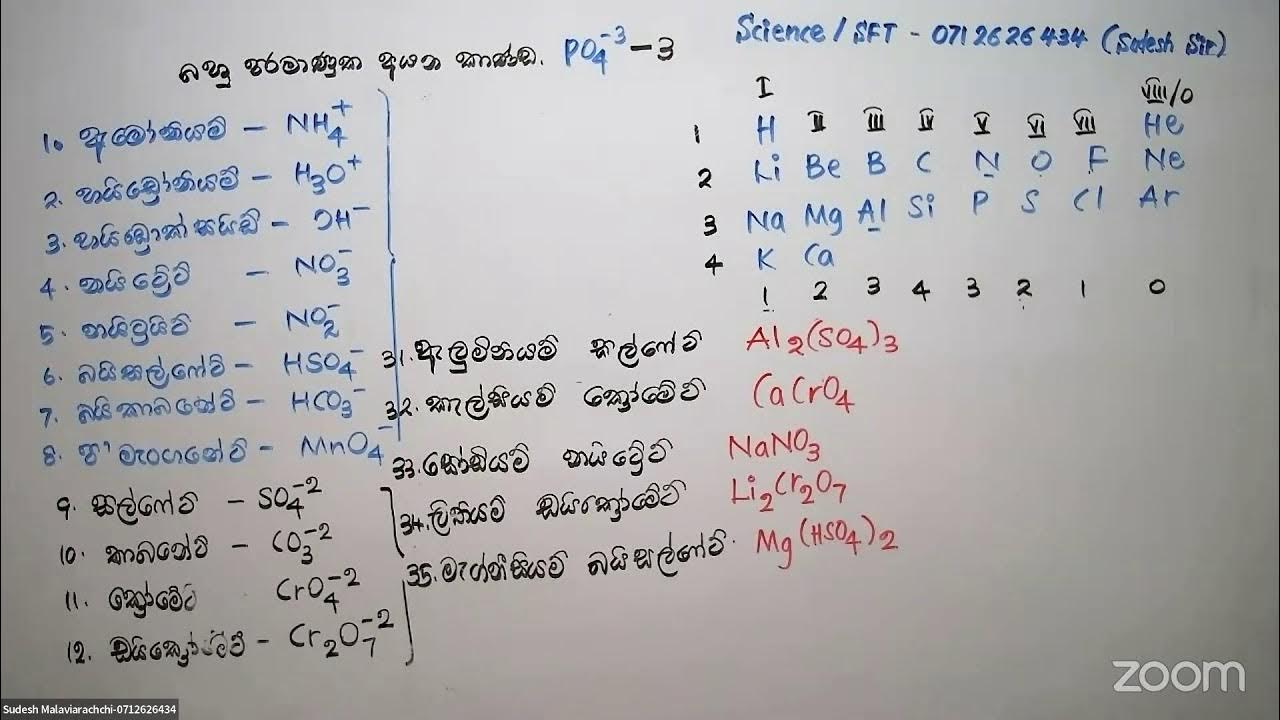 Science / SFT - 0712626434 (Sudesh Sir)
බහු පරමාණුක අයන කාණ්ඩ. PO₄⁻³ – 3
1. ඇමෝනියම් – NH₄⁺
2. හයිඩ්‍රෝනියම් – H₃O⁺
3. හයිඩ්‍රොක්සයිඩ් – OH⁻
4. නයිට්‍රේට් – NO₃⁻
5. නයිට්‍රයිට් – NO₂⁻
6. බයිසල්ෆේට් – HSO₄⁻
7. බයිකාබනේට් – HCO₃⁻
8. ප'මැංගනේට් – MnO₄⁻
9. සල්ෆේට් – SO₄⁻²
10. කාබනේට් – CO₃⁻²
11. ක්‍රෝමේට් CrO₄⁻²
12. ඩයික්‍රෝමේට් – Cr₂O₇⁻²
I VIII/0
1 H II III IV V VI VII He
2 Li Be B C N O F Ne
3 Na Mg Al Si P S Cl Ar
4 K Ca
1 2 3 4 3 2 1 0
31. ඇලුමිනියම් සල්ෆේට් Al₂(SO₄)₃
32. කැල්සියම් ක්‍රෝමේට් CaCrO₄
33. සෝඩියම් නයිට්‍රේට් NaNO₃
34. ලිතියම් ඩයික්‍රෝමේට් Li₂Cr₂O₇
35. මැග්නීසියම් බයිසල්ෆේට් Mg(HSO₄)₂
zoom
Sudesh Malaviarachchi-0712626434